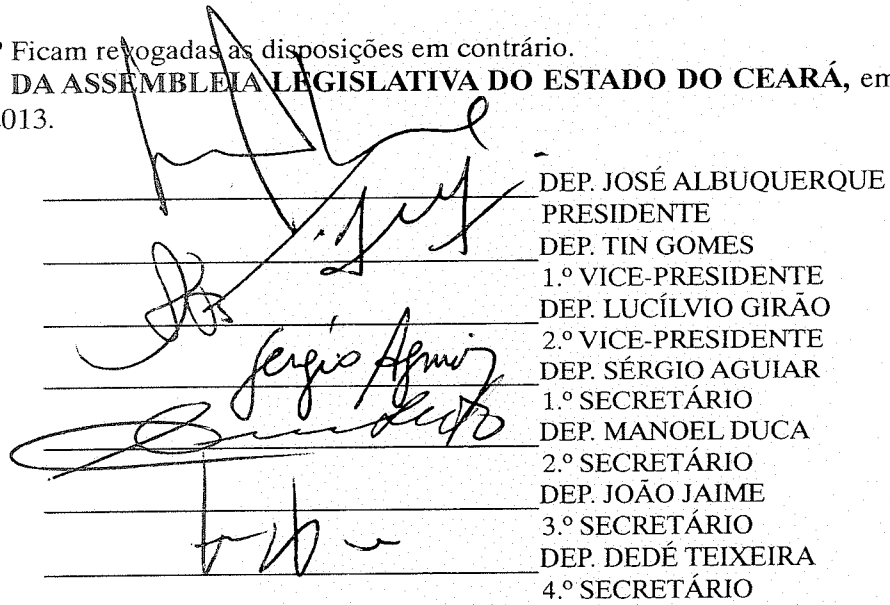 º Ficam revogadas as disposições em contrário.
DA ASSEMBLEIA LEGISLATIVA DO ESTADO DO CEARÁ, em
013.
DEP. JOSÉ ALBUQUERQUE
PRESIDENTE
DEP. TIN GOMES
1.º VICE-PRESIDENTE
DEP. LUCÍLVIO GIRÃO
2.º VICE-PRESIDENTE
Sergio Aguiar
DEP. SÉRGIO AGUIAR
1.º SECRETÁRIO
DEP. MANOEL DUCA
2.º SECRETÁRIO
DEP. JOÃO JAIME
3.º SECRETÁRIO
DEP. DEDÉ TEIXEIRA
4.º SECRETÁRIO